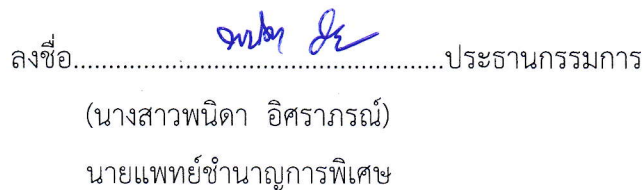 ลงชื่อ......................................................ประธานกรรมการ
(นางสาวพนิดา อิศราภรณ์)
นายแพทย์ชำนาญการพิเศษ